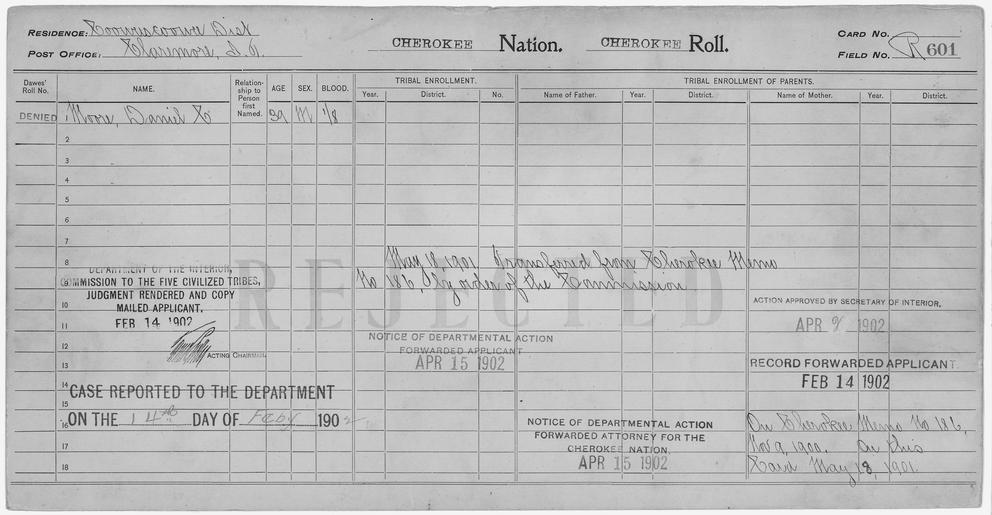 RESIDENCE: Coowescoowee Dist
POST OFFICE: Claremore, I.T.
CHEROKEE Nation. CHEROKEE Roll.
CARD NO.
FIELD NO. R 601
Dawes' Roll No.
NAME.
Relationship to Person first Named.
AGE
SEX.
BLOOD.
TRIBAL ENROLLMENT.
Year. District. No.
TRIBAL ENROLLMENT OF PARENTS.
Name of Father. Year. District. Name of Mother. Year. District.
DENIED 1 Moore, Daniel C 39 M 1/8
2
3
4
5
6
7
8
9
10
11
12
13
14
15
16
17
18
REJECTED
May 18, 1901 Transferred from Cherokee Memo
No 186, by order of the Commission
DEPARTMENT OF THE INTERIOR,
COMMISSION TO THE FIVE CIVILIZED TRIBES,
JUDGMENT RENDERED AND COPY
MAILED APPLICANT.
FEB 14 1902
ACTING CHAIRMAN.
CASE REPORTED TO THE DEPARTMENT
ON THE 14th DAY OF Feby 1902
NOTICE OF DEPARTMENTAL ACTION
FORWARDED APPLICANT
APR 15 1902
ACTION APPROVED BY SECRETARY OF INTERIOR,
APR 2 1902
RECORD FORWARDED APPLICANT.
FEB 14 1902
NOTICE OF DEPARTMENTAL ACTION
FORWARDED ATTORNEY FOR THE
CHEROKEE NATION.
APR 15 1902
On Cherokee Memo No 186,
Nov 9, 1900. On this
Card May 18, 1901.